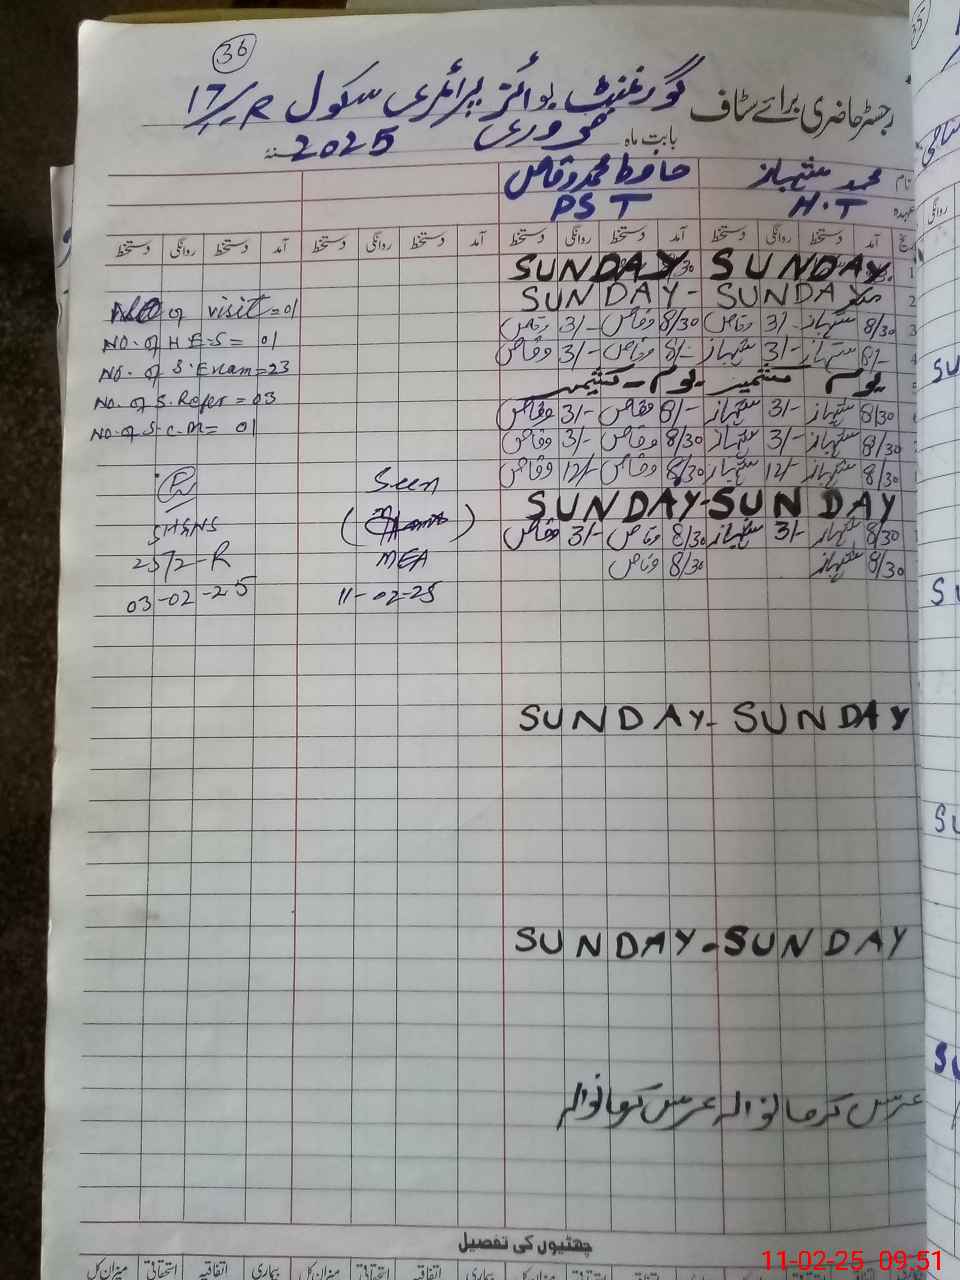 36
رجسٹر حاضری برائے سٹاف گورنمنٹ بوائز پرائمری سکول 17/1-R
بابت ماہ فروری 2025
نام محمد شہباز حافظ محمد وقاص
عہدہ H.T PST
آمد دستخط روانگی دستخط آمد دستخط روانگی دستخط آمد دستخط روانگی دستخط آمد دستخط روانگی دستخط
1 SUNDAY SUNDAY
2 SUNDAY - SUNDAY
3 8/30 شہباز 3/- وقاص 8/30 وقاص 3/- وقاص
4 8/- شہباز 3/- شہباز 8/- وقاص 3/- وقاص
یوم کشمیر - یوم - کشمیر
8/30 شہباز 3/- شہباز 8/- وقاص 3/- وقاص
8/30 شہباز 3/- شہباز 8/30 وقاص 3/- وقاص
8/30 شہباز 12/- شہباز 8/30 وقاص 12/- وقاص
SUNDAY - SUNDAY
8/30 شہباز 3/- شہباز 8/30 وقاص 3/- وقاص
8/30 شہباز 8/30 وقاص
SUNDAY - SUNDAY
SUNDAY - SUNDAY
عرس کرمانوالہ عرس کرمانوالہ
No of visit = 01
No. of H.E.S = 01
No. of S. Exam = 23
No. of S. Refer = 03
No. of S.C.M = 01
SHSNS
25/2-R
03-02-25
Seen
MEA
11-02-25
چھٹیوں کی تفصیل
بیماری اتفاقیہ استحقاقی میزان کل بیماری اتفاقیہ استحقاقی میزان کل
35
روانگی
SU
SU
SU
SU
11-02-25 09:51